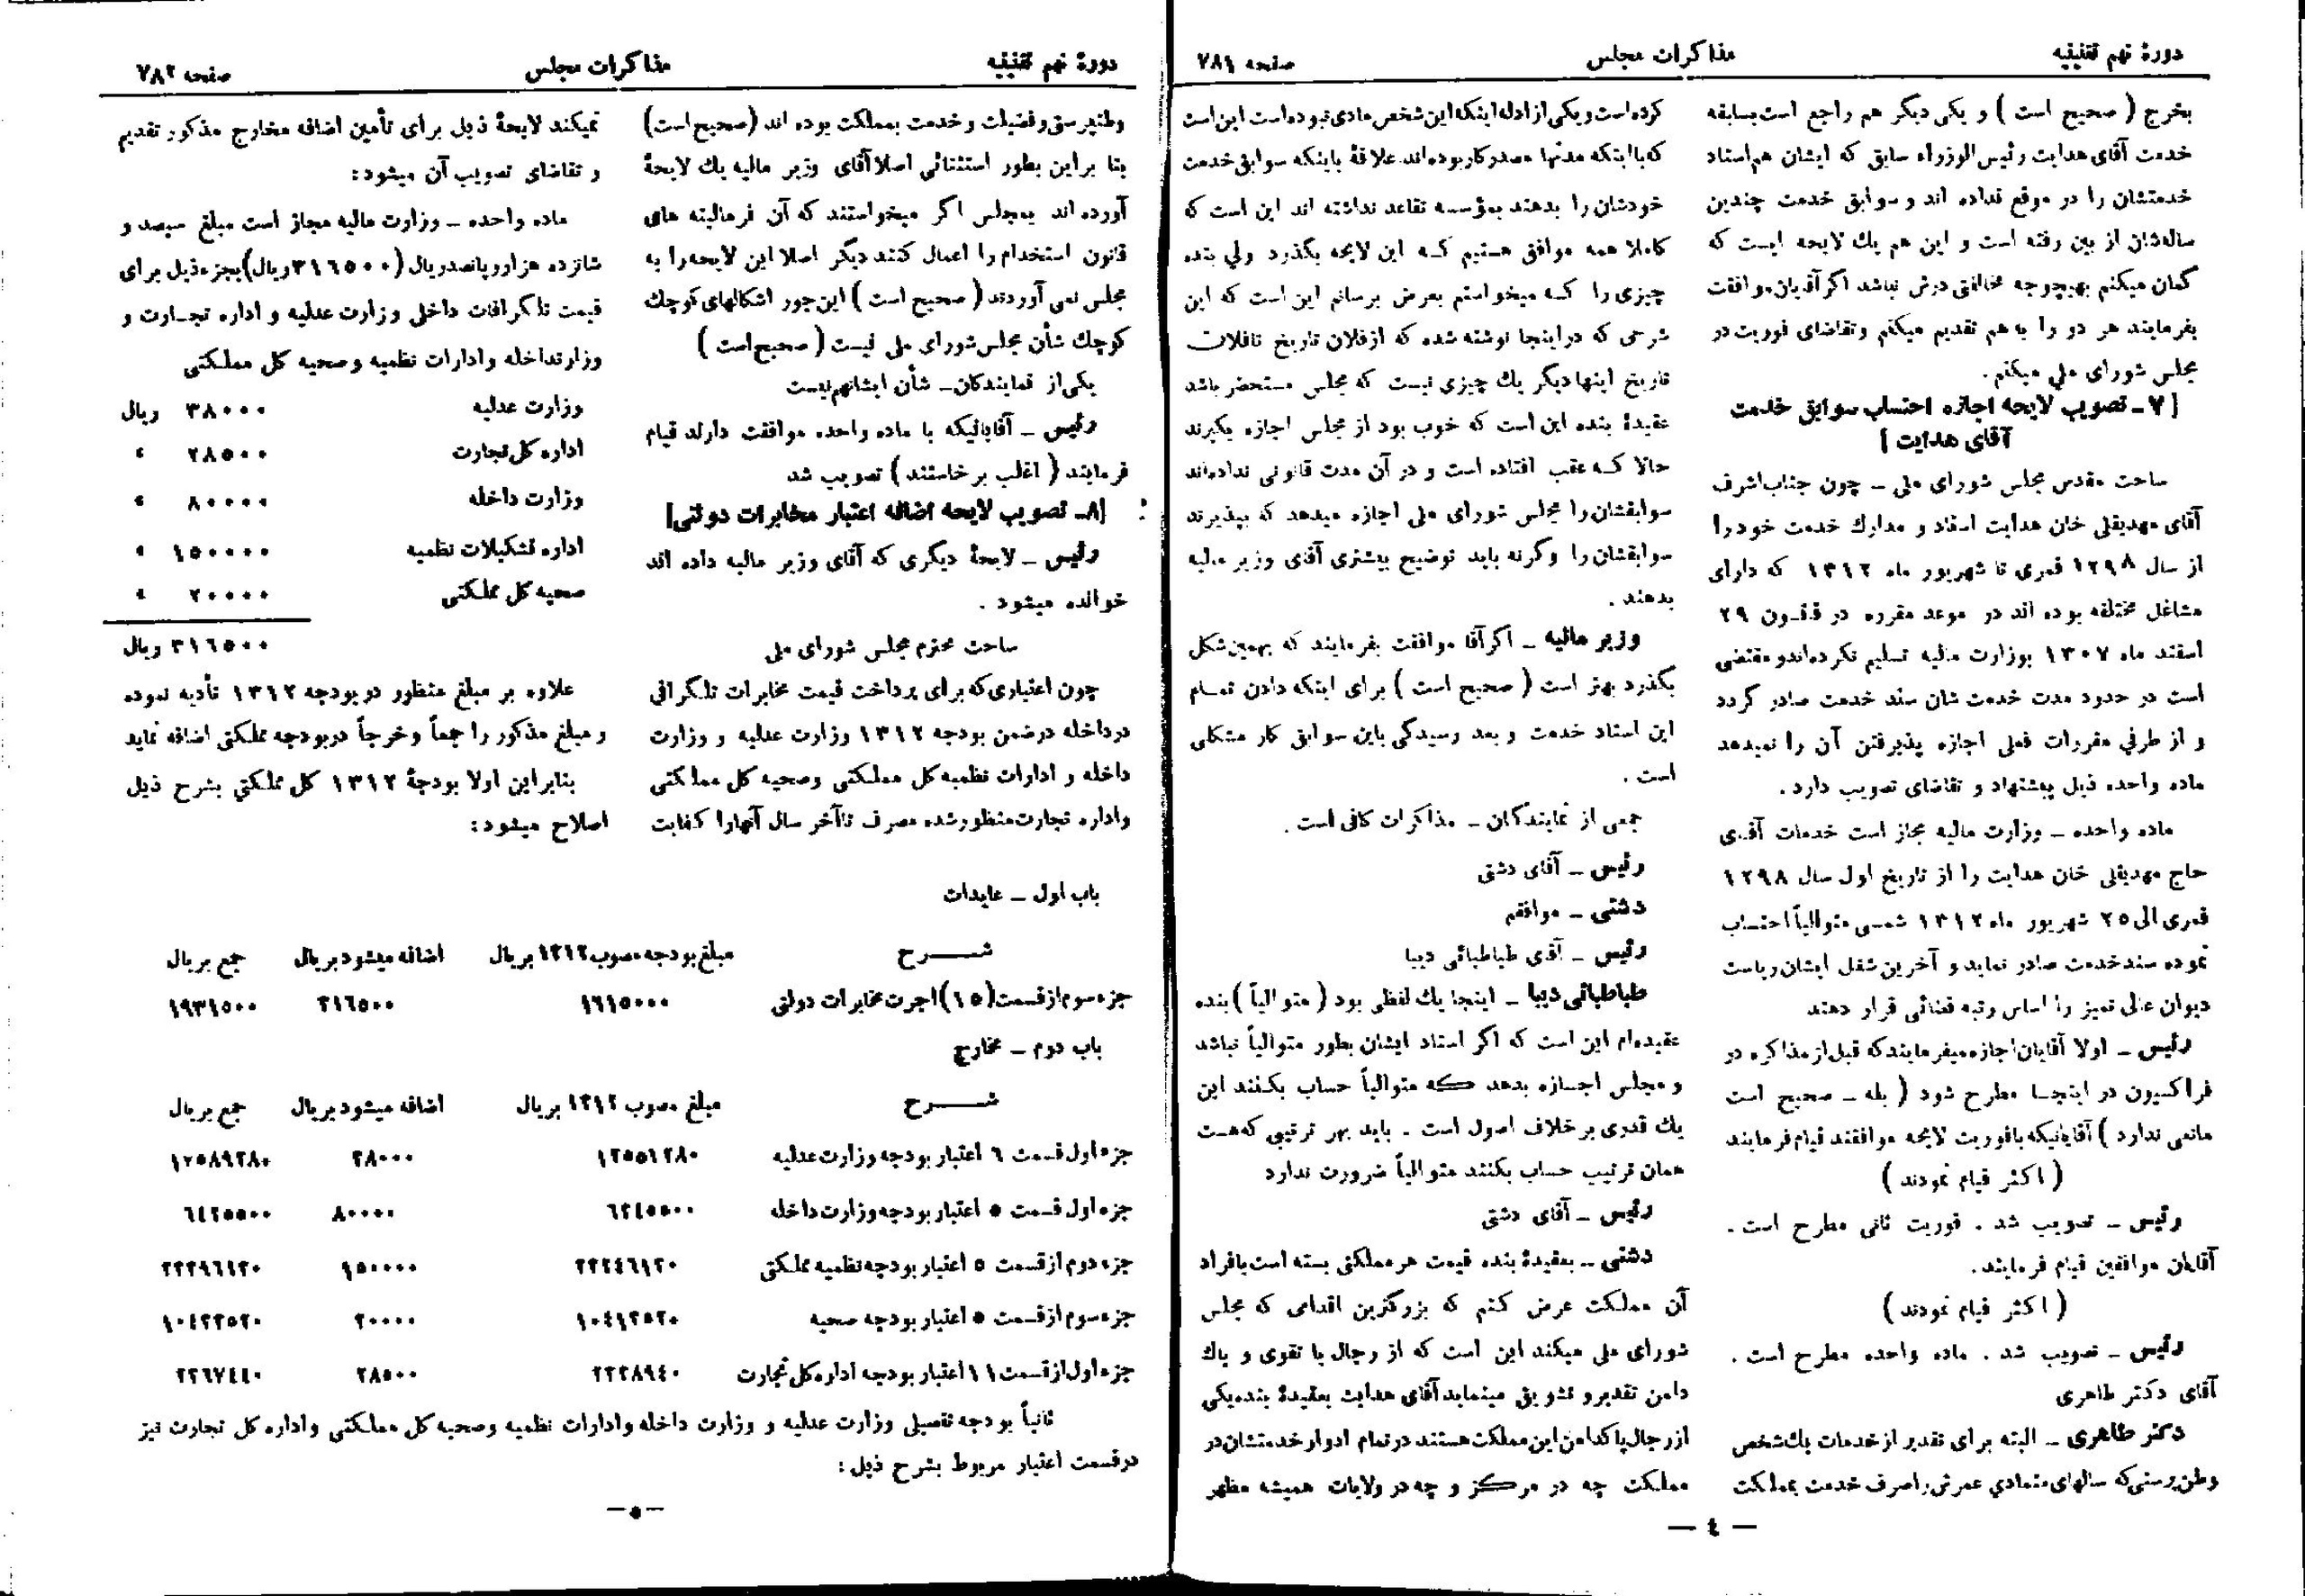 دورهٔ نهم تقنینیه
مذاکرات مجلس
صفحه ۷۸۱
بخرج ( صحیح است ) و یکی دیگر هم راجع است بسابقه
خدمت آقای هدایت رئیس الوزراء سابق که ایشان هم اسناد
خدمتشان را در موقع نداده اند و سوابق خدمت چندین
ساله‌شان از بین رفته است و این هم یك لایحه ایست که
گمان میکنم بهیچوجه مخالفتی درش نباشد اگر آقایان موافقت
بفرمایند هر دو را به هم تقدیم میکنم و تقاضای فوریت در
مجلس شورای ملی میکنم .
[ ۷ ـ تصویب لایحه اجازه احتساب سوابق خدمت
آقای هدایت ]
ساحت مقدس مجلس شورای ملی ـ چون جناب اشرف
آقای مهدیقلی خان هدایت اسناد و مدارك خدمت خود را
از سال ۱۲۹۸ قمری تا شهریور ماه ۱۳۱۲ که دارای
مشاغل مختلفه بوده اند در موعد مقرره در قانون ۲۹
اسفند ماه ۱۳۰۷ بوزارت مالیه تسلیم نکرده‌اند و مقتضی
است در حدود مدت خدمت شان سند خدمت صادر گردد
و از طرفی مقررات فعلی اجازه پذیرفتن آن را نمیدهد
ماده واحده ذیل پیشنهاد و تقاضای تصویب دارد .
ماده واحده ـ وزارت مالیه مجاز است خدمات آقای
حاج مهدیقلی خان هدایت را از تاریخ اول سال ۱۲۹۸
قمری الی ۲۵ شهریور ماه ۱۳۱۲ شمسی متوالیاً احتساب
نموده سند خدمت صادر نماید و آخرین شغل ایشان ریاست
دیوان عالی تمیز را اساس رتبه قضائی قرار دهند
رئیس ـ اولا آقایان اجازه میفرمایند که قبل از مذاکره در
فراکسیون در اینجا مطرح شود ( بله ـ صحیح است
مانعی ندارد ) آقایانیکه با فوریت لایحه موافقند قیام فرمایند
( اکثر قیام نمودند )
رئیس ـ تصویب شد . فوریت ثانی مطرح است .
آقایان موافقین قیام فرمایند.
( اکثر قیام نمودند )
رئیس ـ تصویب شد . ماده واحده مطرح است .
آقای دکتر طاهری
دکتر طاهری ـ البته برای تقدیر از خدمات یك شخص
وطن پرستی که سالهای متمادی عمرش را صرف خدمت بمملکت
کرده است و یکی از ادله اینکه این شخص مادی نبوده است این است
که با اینکه مدتها مصدر کار بوده‌اند علاقهٔ باینکه سوابق خدمت
خودشان را بدهند بمؤسسه تقاعد نداشته اند این است که
کاملا همه موافق هستیم که این لایحه بگذرد ولی بنده
چیزی را که میخواستم بعرض برسانم این است که این
شرحی که در اینجا نوشته شده که از فلان تاریخ تا فلان
تاریخ اینها دیگر یك چیزی نیست که مجلس مستحضر باشد
عقیدهٔ بنده این است که خوب بود از مجلس اجازه بگیرند
حالا که عقب افتاده است و در آن مدت قانونی نداده‌اند
سوابقشان را مجلس شورای ملی اجازه میدهد که بپذیرند
سوابقشان را و گرنه باید توضیح بیشتری آقای وزیر مالیه
بدهند .
وزیر مالیه ـ اگر آقا موافقت بفرمایند که بهمین شکل
بگذرد بهتر است ( صحیح است ) برای اینکه دادن تمام
این اسناد خدمت و بعد رسیدگی باین سوابق کار مشکلی
است .
جمعی از نمایندگان ـ مذاکرات کافی است .
رئیس ـ آقای دشتی
دشتی ـ موافقم
رئیس ـ آقای طباطبائی دیبا
طباطبائی دیبا ـ اینجا یك لفظی بود ( متوالیاً ) بنده
عقیده‌ام این است که اگر اسناد ایشان بطور متوالیاً نباشد
و مجلس اجازه بدهد که متوالیاً حساب بکنند این
یك قدری برخلاف اصول است . باید بهر ترتیبی که هست
همان ترتیب حساب بکنند متوالیاً ضرورت ندارد
رئیس ـ آقای دشتی
دشتی ـ بعقیدهٔ بنده قیمت هر مملکتی بسته است بافراد
آن مملکت عرض کنم که بزرگترین اقدامی که مجلس
شورای ملی میکند این است که از رجال با تقوی و پاك
دامن تقدیر و تشویق مینماید آقای هدایت بعقیدهٔ بنده یکی
از رجال پاکدامن این مملکت هستند در تمام ادوار خدمتشان در
مملکت چه در مرکز و چه در ولایات همیشه مظهر
— ٤ —
دورهٔ نهم تقنینیه
مذاکرات مجلس
صفحه ۷۸۲
وطنپرستی و فضیلت و خدمت بمملکت بوده اند (صحیح است)
بنا براین بطور استثنائی اصلا آقای وزیر مالیه یك لایحهٔ
آورده اند بمجلس اگر میخواستند که آن فرمالیته های
قانون استخدام را اعمال کنند دیگر اصلا این لایحه را به
مجلس نمی آوردند ( صحیح است ) این جور اشکالهای کوچك
کوچك شأن مجلس شورای ملی نیست ( صحیح است )
یکی از نمایندگان ـ شأن ایشانهم نیست
رئیس ـ آقایانیکه با ماده واحده موافقت دارند قیام
فرمایند ( اغلب برخاستند ) تصویب شد
[۸ ـ تصویب لایحه اضافه اعتبار مخابرات دولتی]
رئیس ـ لایحهٔ دیگری که آقای وزیر مالیه داده اند
خوانده میشود .
ساحت محترم مجلس شورای ملی
چون اعتباری که برای پرداخت قیمت مخابرات تلگرافی
در داخله در ضمن بودجه ۱۳۱۲ وزارت عدلیه و وزارت
داخله و ادارات نظمیه کل مملکتی و صحیه کل مملکتی
و اداره تجارت منظور شده مصرف تا آخر سال آنها را کفایت
نمیکند لایحهٔ ذیل برای تأمین اضافه مخارج مذکور تقدیم
و تقاضای تصویب آن میشود:
ماده واحده ـ وزارت مالیه مجاز است مبلغ سیصد و
شانزده هزار و پانصد ریال (۳۱٦۵۰۰ ریال) بجزء ذیل برای
قیمت تلگرافات داخلی وزارت عدلیه و اداره تجارت و
وزارت داخله و ادارات نظمیه و صحیه کل مملکتی
وزارت عدلیه ۳۸۰۰۰ ریال
اداره کل تجارت ۲۸۵۰۰ «
وزارت داخله ۸۰۰۰۰ «
اداره تشکیلات نظمیه ۱۵۰۰۰۰ «
صحیه کل مملکتی ۲۰۰۰۰ «
۳۱٦۵۰۰ ریال
علاوه بر مبلغ منظور در بودجه ۱۳۱۲ تأدیه نموده
و مبلغ مذکور را جمعاً و خرجاً در بودجه مملکتی اضافه نماید
بنابراین اولا بودجهٔ ۱۳۱۲ کل مملکتی بشرح ذیل
اصلاح میشود:
باب اول ـ عایدات
شرح مبلغ بودجه مصوب ۱۳۱۲ بریال اضافه میشود بریال جمع بریال
جزء سوم از قسمت (۱۵) اجرت مخابرات دولتی ۱٦۱۵۰۰۰ ۳۱٦۵۰۰ ۱۹۳۱۵۰۰
باب دوم ـ مخارج
شرح مبلغ مصوب ۱۳۱۲ بریال اضافه میشود بریال جمع بریال
جزء اول قسمت ٦ اعتبار بودجه وزارت عدلیه ۳۸۰۰۰
جزء اول قسمت ۵ اعتبار بودجه وزارت داخله ٦۳٤۵۵۰۰ ۸۰۰۰۰ ٦٤۲۵۵۰۰
جزء دوم از قسمت ۵ اعتبار بودجه نظمیه مملکتی ۱۵۰۰۰۰
جزء سوم از قسمت ۵ اعتبار بودجه صحیه ۲۰۰۰۰
جزء اول از قسمت ۱۱ اعتبار بودجه اداره کل تجارت ۲۸۵۰۰
ثانیاً بودجه تفصیلی وزارت عدلیه و وزارت داخله و ادارات نظمیه و صحیه کل مملکتی و اداره کل تجارت نیز
در قسمت اعتبار مربوط بشرح ذیل :
— ۵ —